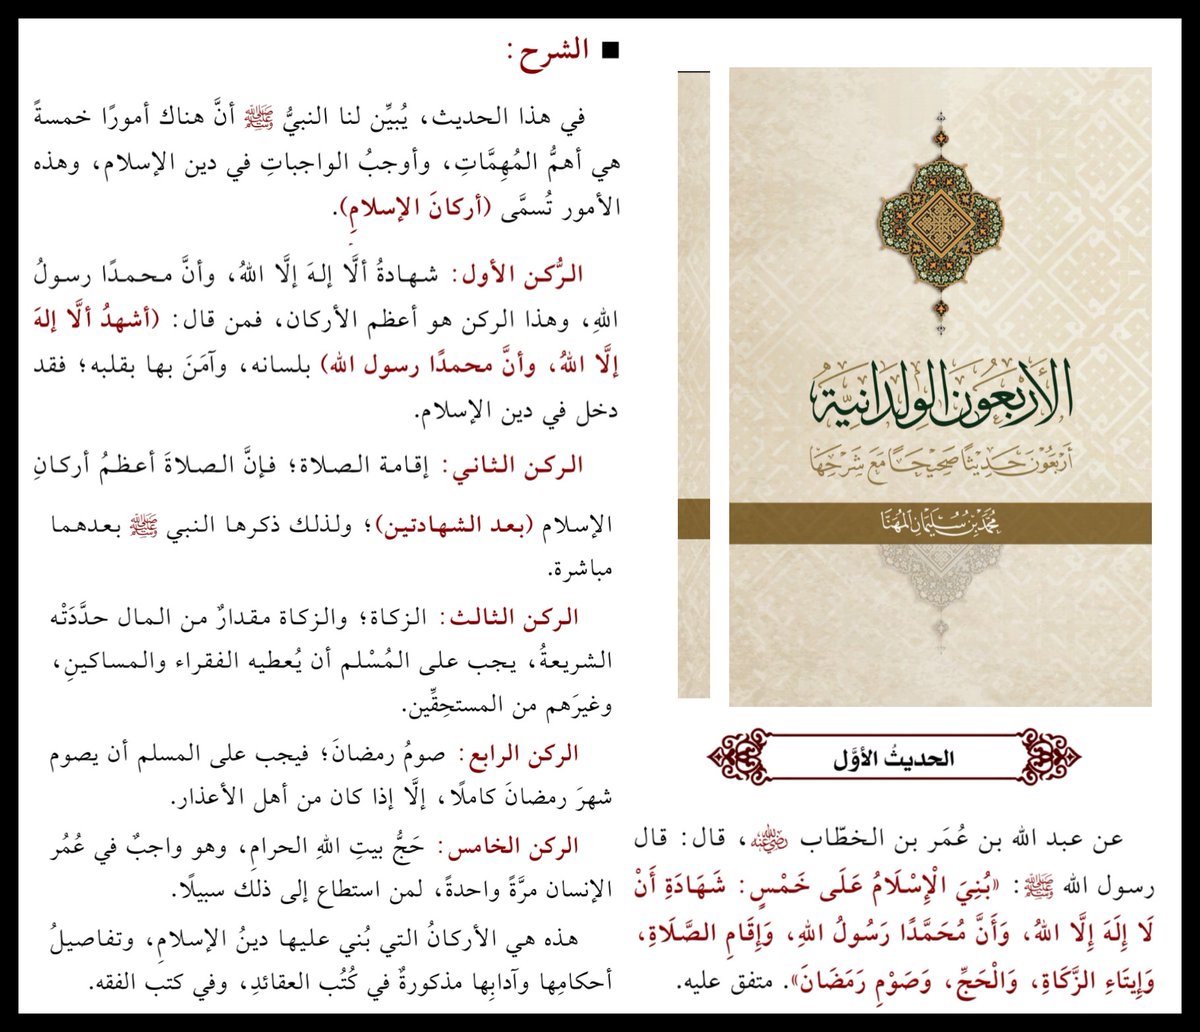 الأربعون الولدانية
أربعون حديثا صحيحا مع شرحها
محمد بن سليمان المهنا
الحديثُ الأوَّل
عن عبد الله بن عُمَر بن الخطّاب ﵁، قال: قال
رسول الله ﷺ: «بُنِيَ الْإِسْلَامُ عَلَى خَمْسٍ: شَهَادَةِ أَنْ
لَا إِلَهَ إِلَّا اللهُ، وَأَنَّ مُحَمَّدًا رَسُولُ اللهِ، وَإِقَامِ الصَّلَاةِ،
وَإِيتَاءِ الزَّكَاةِ، وَالْحَجِّ، وَصَوْمِ رَمَضَانَ». متفق عليه.
■ الشرح:
في هذا الحديث، يُبيِّن لنا النبيُّ ﷺ أنَّ هناك أمورًا خمسةً
هي أهمُّ المُهِمَّاتِ، وأوجبُ الواجباتِ في دين الإسلام، وهذه
الأمور تُسمَّى (أركانَ الإسلامِ).
الرُّكن الأول: شهادةُ ألَّا إلهَ إلَّا اللهُ، وأنَّ محمدًا رسولُ
اللهِ، وهذا الركن هو أعظم الأركان، فمن قال: (أشهدُ ألَّا إلهَ
إلَّا اللهُ، وأنَّ محمدًا رسول الله) بلسانه، وآمَنَ بها بقلبه؛ فقد
دخل في دين الإسلام.
الركن الثاني: إقامة الصلاة؛ فإنَّ الصلاةَ أعظمُ أركانِ
الإسلام (بعد الشهادتين)؛ ولذلك ذكرها النبي ﷺ بعدهما
مباشرة.
الركن الثالث: الزكاة؛ والزكاة مقدارٌ من المال حدَّدَتْه
الشريعةُ، يجب على المُسْلم أن يُعطيه الفقراء والمساكينِ،
وغيرَهم من المستحِقِّين.
الركن الرابع: صومُ رمضانَ؛ فيجب على المسلم أن يصوم
شهرَ رمضانَ كاملًا، إلَّا إذا كان من أهل الأعذار.
الركن الخامس: حَجُّ بيتِ اللهِ الحرامِ، وهو واجبٌ في عُمُر
الإنسان مرَّةً واحدةً، لمن استطاع إلى ذلك سبيلًا.
هذه هي الأركانُ التي بُني عليها دينُ الإسلامِ، وتفاصيلُ
أحكامِها وآدابِها مذكورةٌ في كُتُب العقائدِ، وفي كتب الفقه.